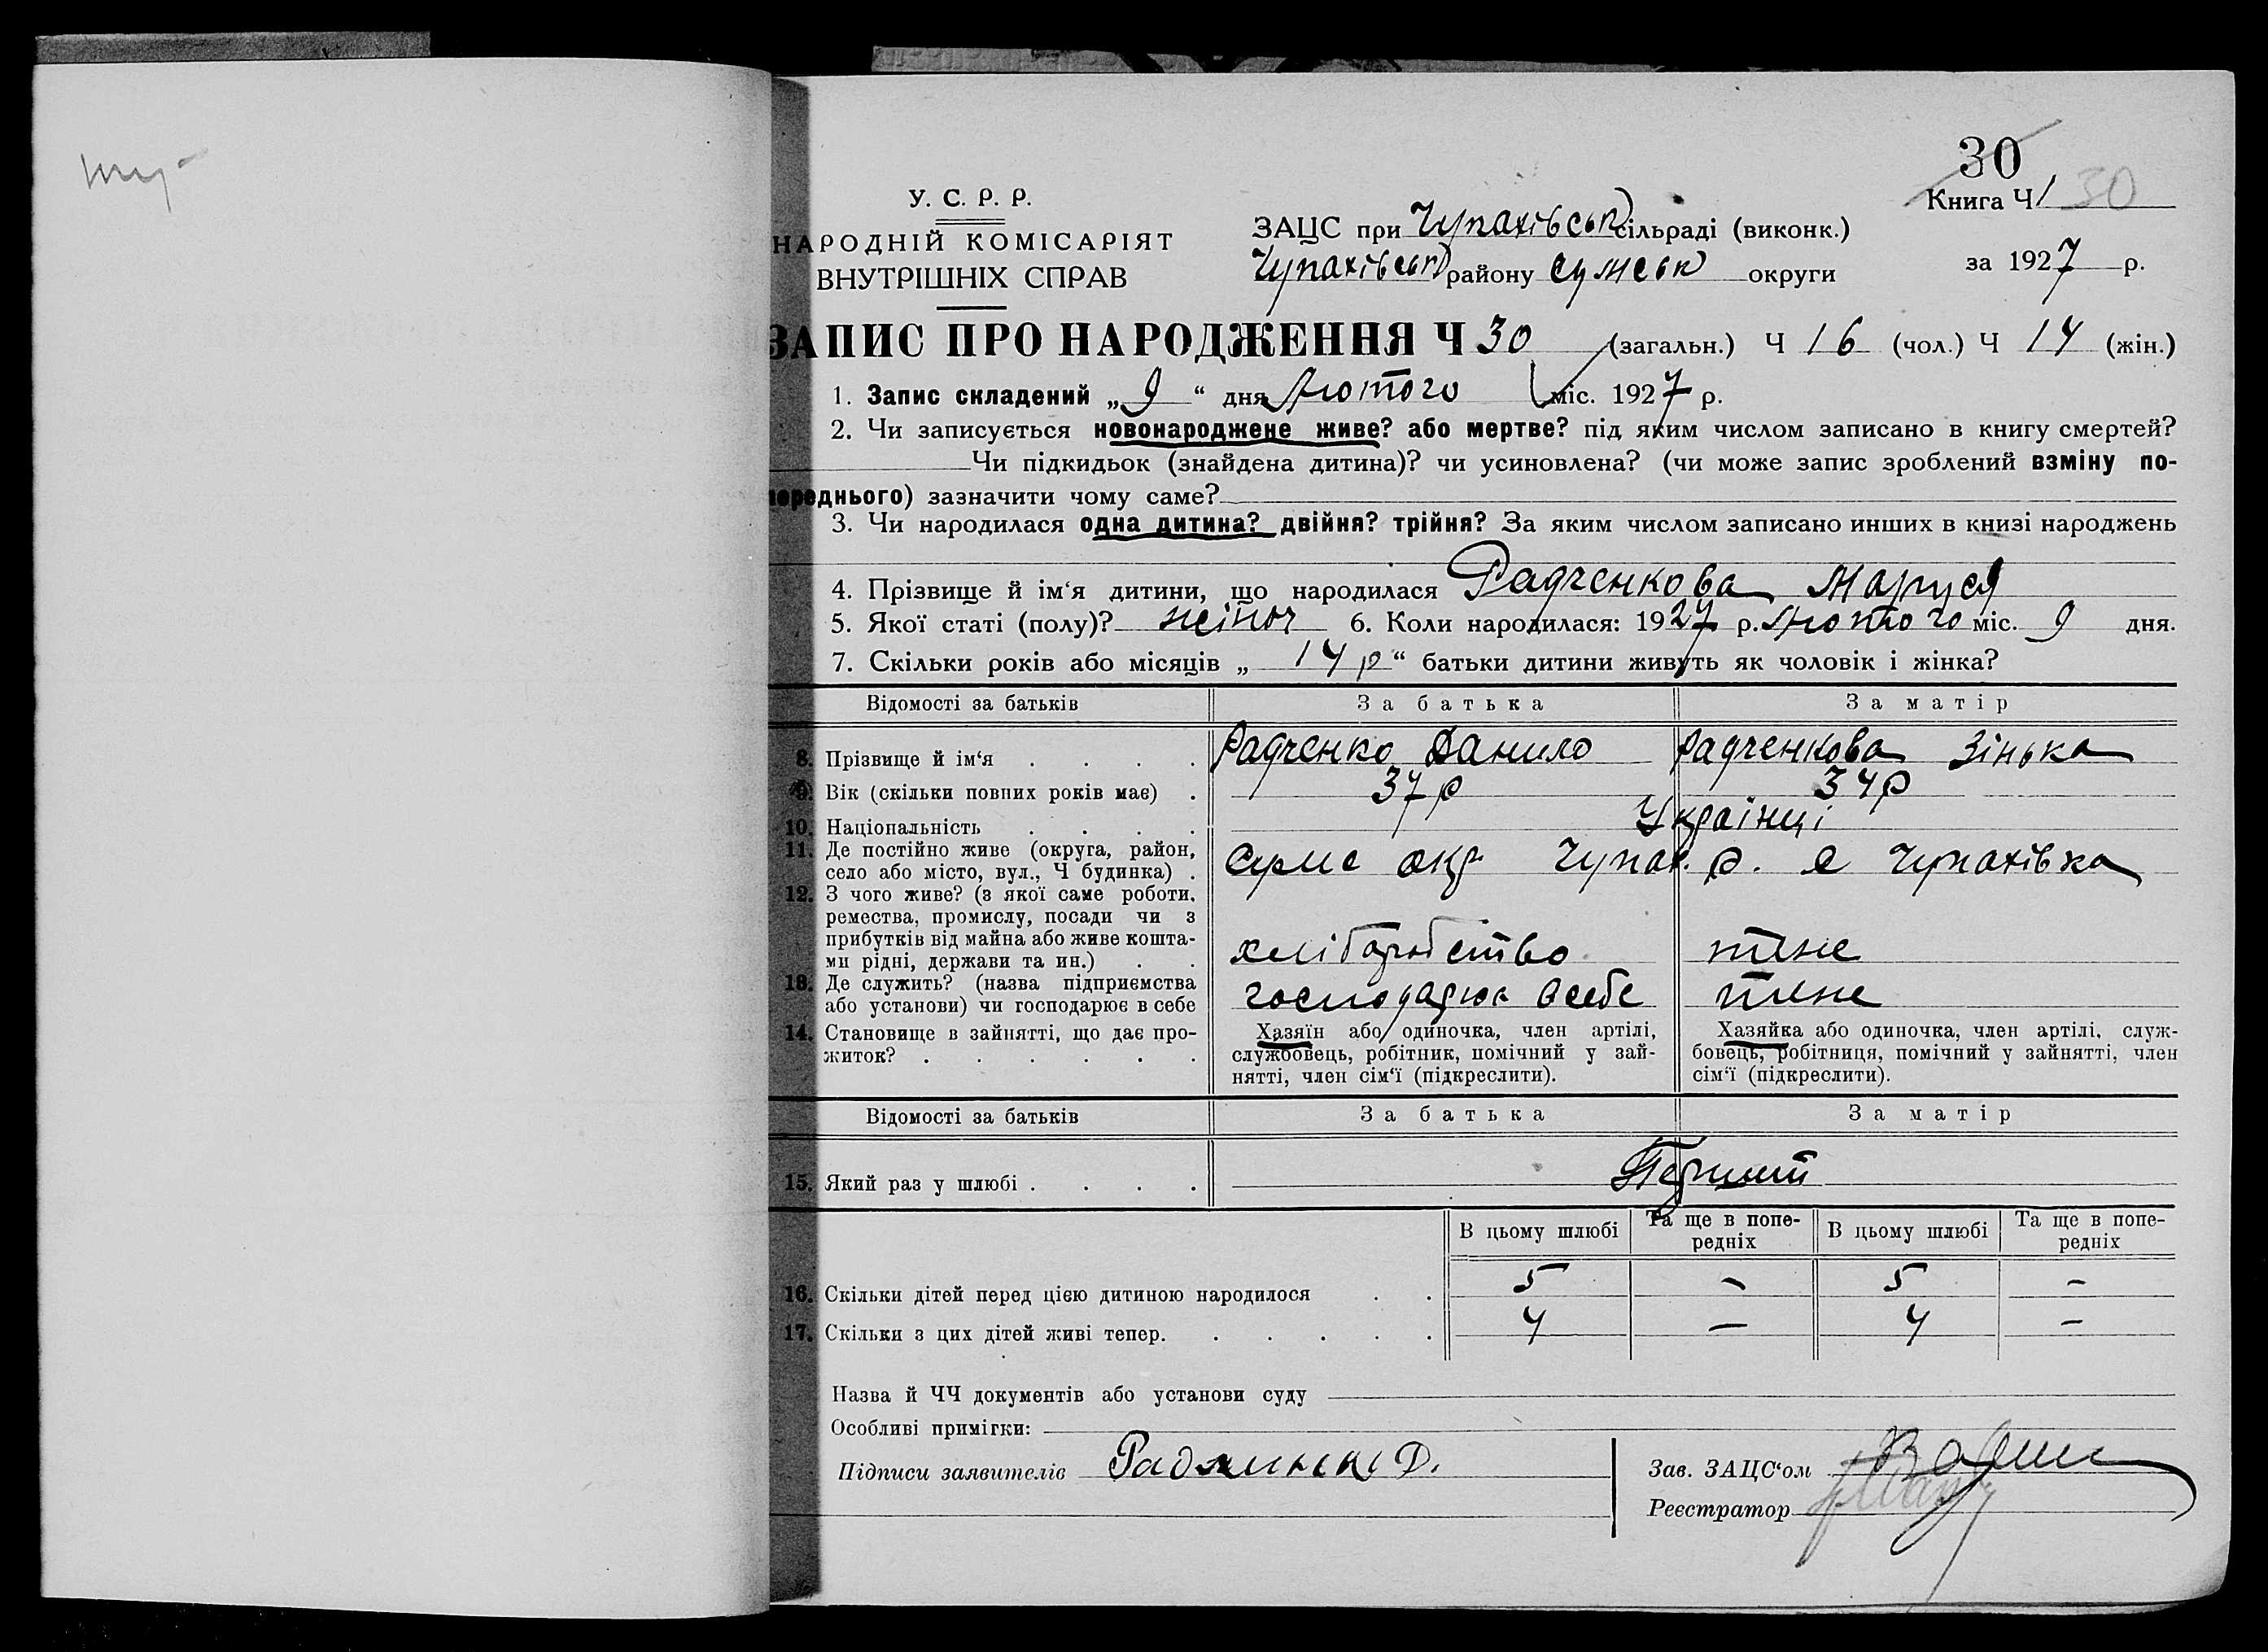 30
У. С. Р. Р.
НАРОДНІЙ КОМІСАРІЯТ
ВНУТРІШНІХ СПРАВ
ЗАЦС при Чупахівськ сільраді (виконк.)
Чупахівськ району Сумськ округи
Книга Ч 1 30
за 1927 р.
ЗАПИС ПРО НАРОДЖЕННЯ Ч 30 (загальн.) Ч 16 (чол.) Ч 14 (жін.)
1. Запис складений „ 9 “ дня Лютого міс. 1927 р.
2. Чи записується новонароджене живе? або мертве? під яким числом записано в книгу смертей?
Чи підкидьок (знайдена дитина)? чи усиновлена? (чи може запис зроблений взміну по-
переднього) зазначити чому саме?
3. Чи народилася одна дитина? двійня? трійня? За яким числом записано инших в книзі народжень
4. Прізвище й ім‘я дитини, що народилася Радченкова Маруся
5. Якої статі (полу)? жіноч 6. Коли народилася: 1927 р. Лютого міс. 9 дня.
7. Скільки років або місяців „ 14 р “ батьки дитини живуть як чоловік і жінка?
Відомості за батьків За батька За матір
8. Прізвище й ім‘я . . . . Радченко Данило Радченкова Зінька
9. Вік (скільки повних років має) . 37 р 34 р
10. Національність . . . . Українці
11. Де постійно живе (округа, район,
село або місто, вул., Ч будинка) . Сумс окр Чупах. р. с Чупахівка
12. З чого живе? (з якої саме роботи,
ремества, промислу, посади чи з
прибутків від майна або живе кошта-
ми рідні, держави та ин.) . . хліборобство теж
13. Де служить? (назва підприємства
або установи) чи господарює в себе господарює всебе теж
14. Становище в зайнятті, що дає про-
житок? . . . . . .
Хазяїн або одиночка, член артілі,
службовець, робітник, помічний у зай-
нятті, член сім‘ї (підкреслити).
Хазяйка або одиночка, член артілі, служ-
бовець, робітниця, помічний у зайнятті, член
сім‘ї (підкреслити).
Відомості за батьків За батька За матір
15. Який раз у шлюбі . . . . Перший
В цьому шлюбі Та ще в попе-
редніх В цьому шлюбі Та ще в попе-
редніх
16. Скільки дітей перед цією дитиною народилося . . 5 – 5 –
17. Скільки з цих дітей живі тепер. . . . . . 4 – 4 –
Назва й ЧЧ документів або установи суду
Особливі примітки:
Підписи заявителів Д.
Зав. ЗАЦС‘ом
Реєстратор